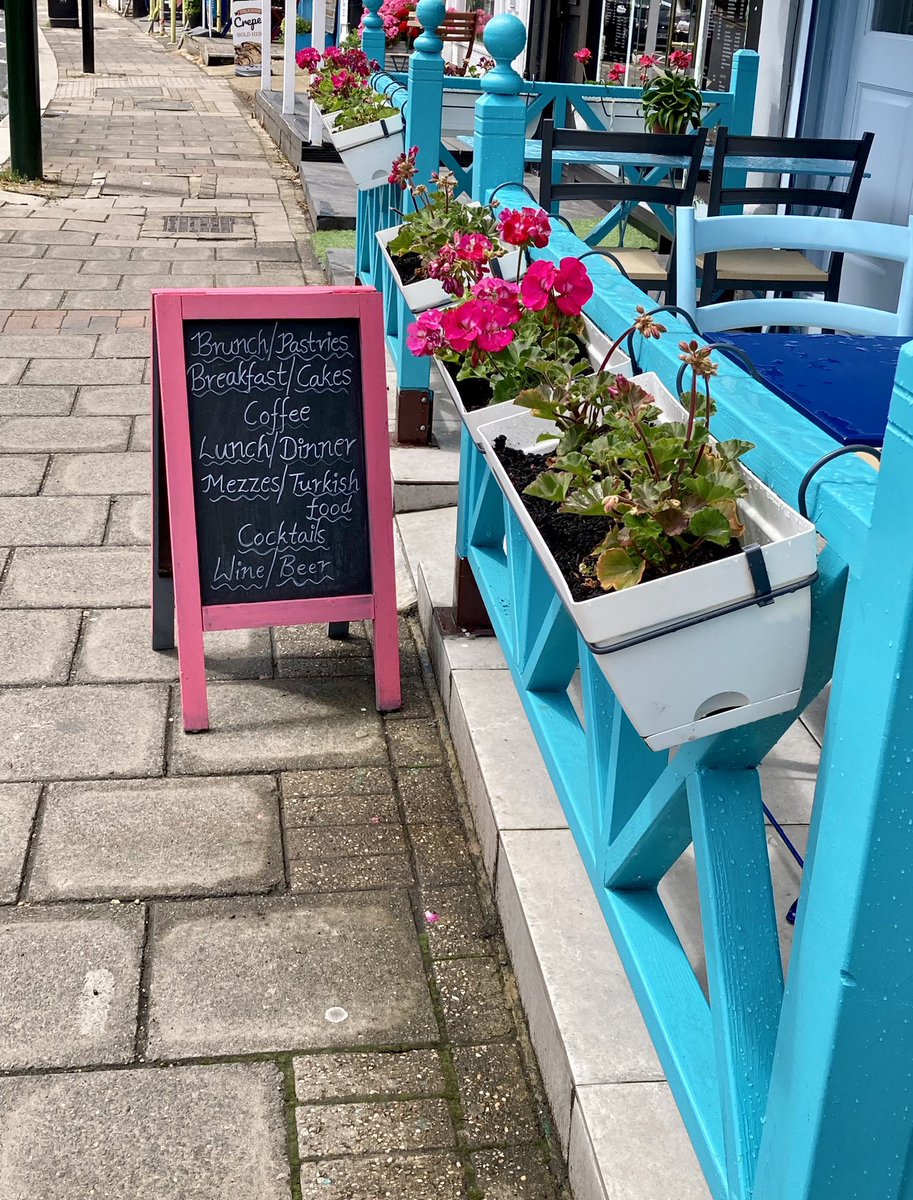 Crepe
Brunch/Pastries
Breakfast/Cakes
Coffee
Lunch/Dinner
Mezzes/Turkish
food
Cocktails
Wine/Beer